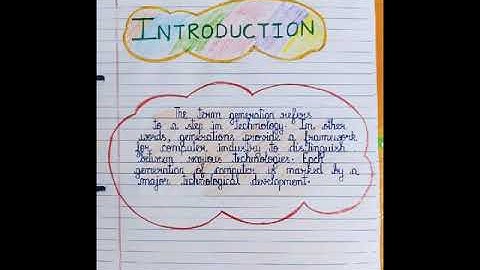 INTRODUCTION
The term generation refers
to a step in technology. In other
words, generations provide a framework
for computer industry to distinguish
between various technologies. Each
generation of computer is marked by a
major technological development.